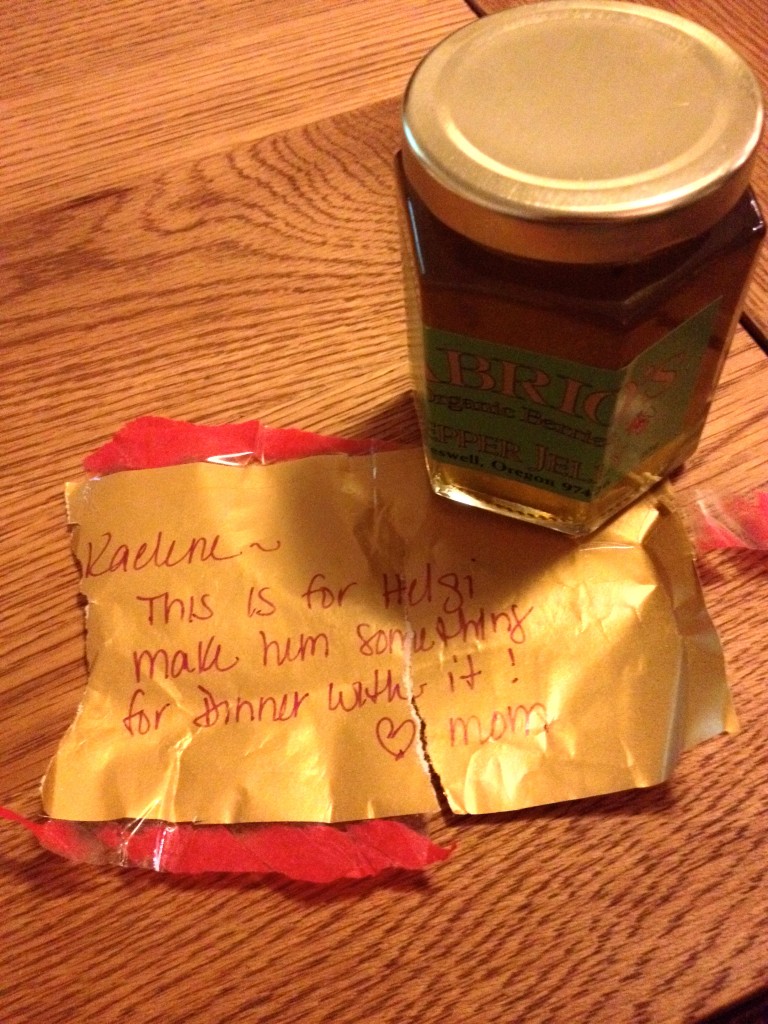 ABRIO
organic Berrie
EPPER JEL
eswell, Oregon 974
Raelene ~
This is for Helgi
make him something
for Dinner with it!
♡ mom